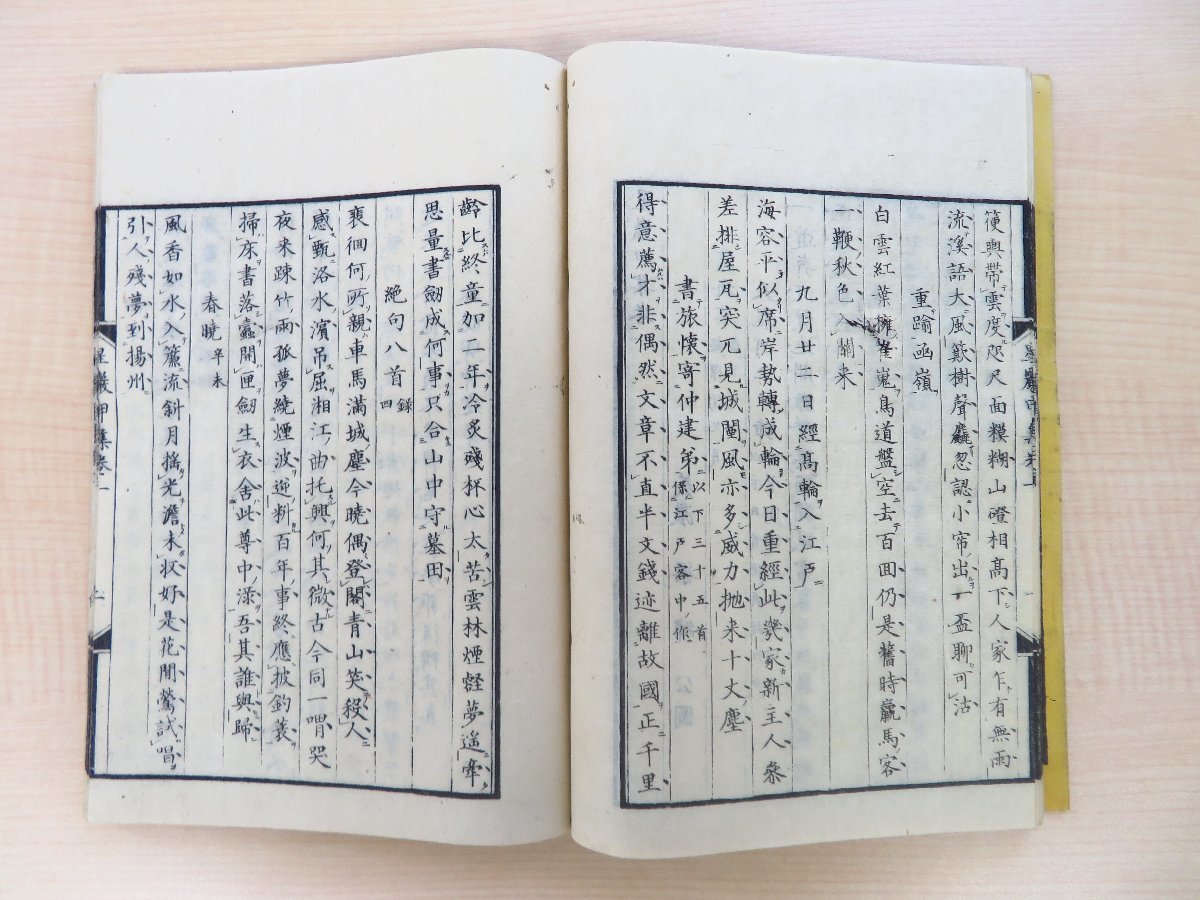 筧輿帶雲度咫尺面糢糊山磴相高下人家乍有無雨
流溪語大風簌樹聲麤忽認小帘出一盃聊可沽
重踰函嶺
白雲紅葉擁崔嵬鳥道盤空去百回仍是舊時羸馬客
一鞭秋色入關来
九月廿二日經高輪入江戶
海容平似席岸勢轉成輪今日重經此幾家新主人參
差排屋瓦突兀見城闉風亦多威力拋来十丈塵
書旅懷寄仲建弟以下三十五首
係江戶客中作
得意薦才非偶然文章不直半文錢迹離故國正千里
齡比終童加二年冷炙殘杯心太苦雲林煙壑夢遙牽
思量書劒成何事只合山中守墓田
絕句八首錄
四
裴徊何所親車馬滿城塵今曉偶登閣青山笑殺人
感甄洛水濱吊屈湘江曲托興何其微古今同一哭
夜来踈竹雨孤夢繞煙波逆料百年事終應披釣蓑
掃床書落蠹開匣劒生衣舍此尊中淥吾其誰與歸
春曉辛未
風香如水入簾流斜月搖光澹未收好是花間鶯試唱
引人殘夢到揚州
星巖甲集卷一
二